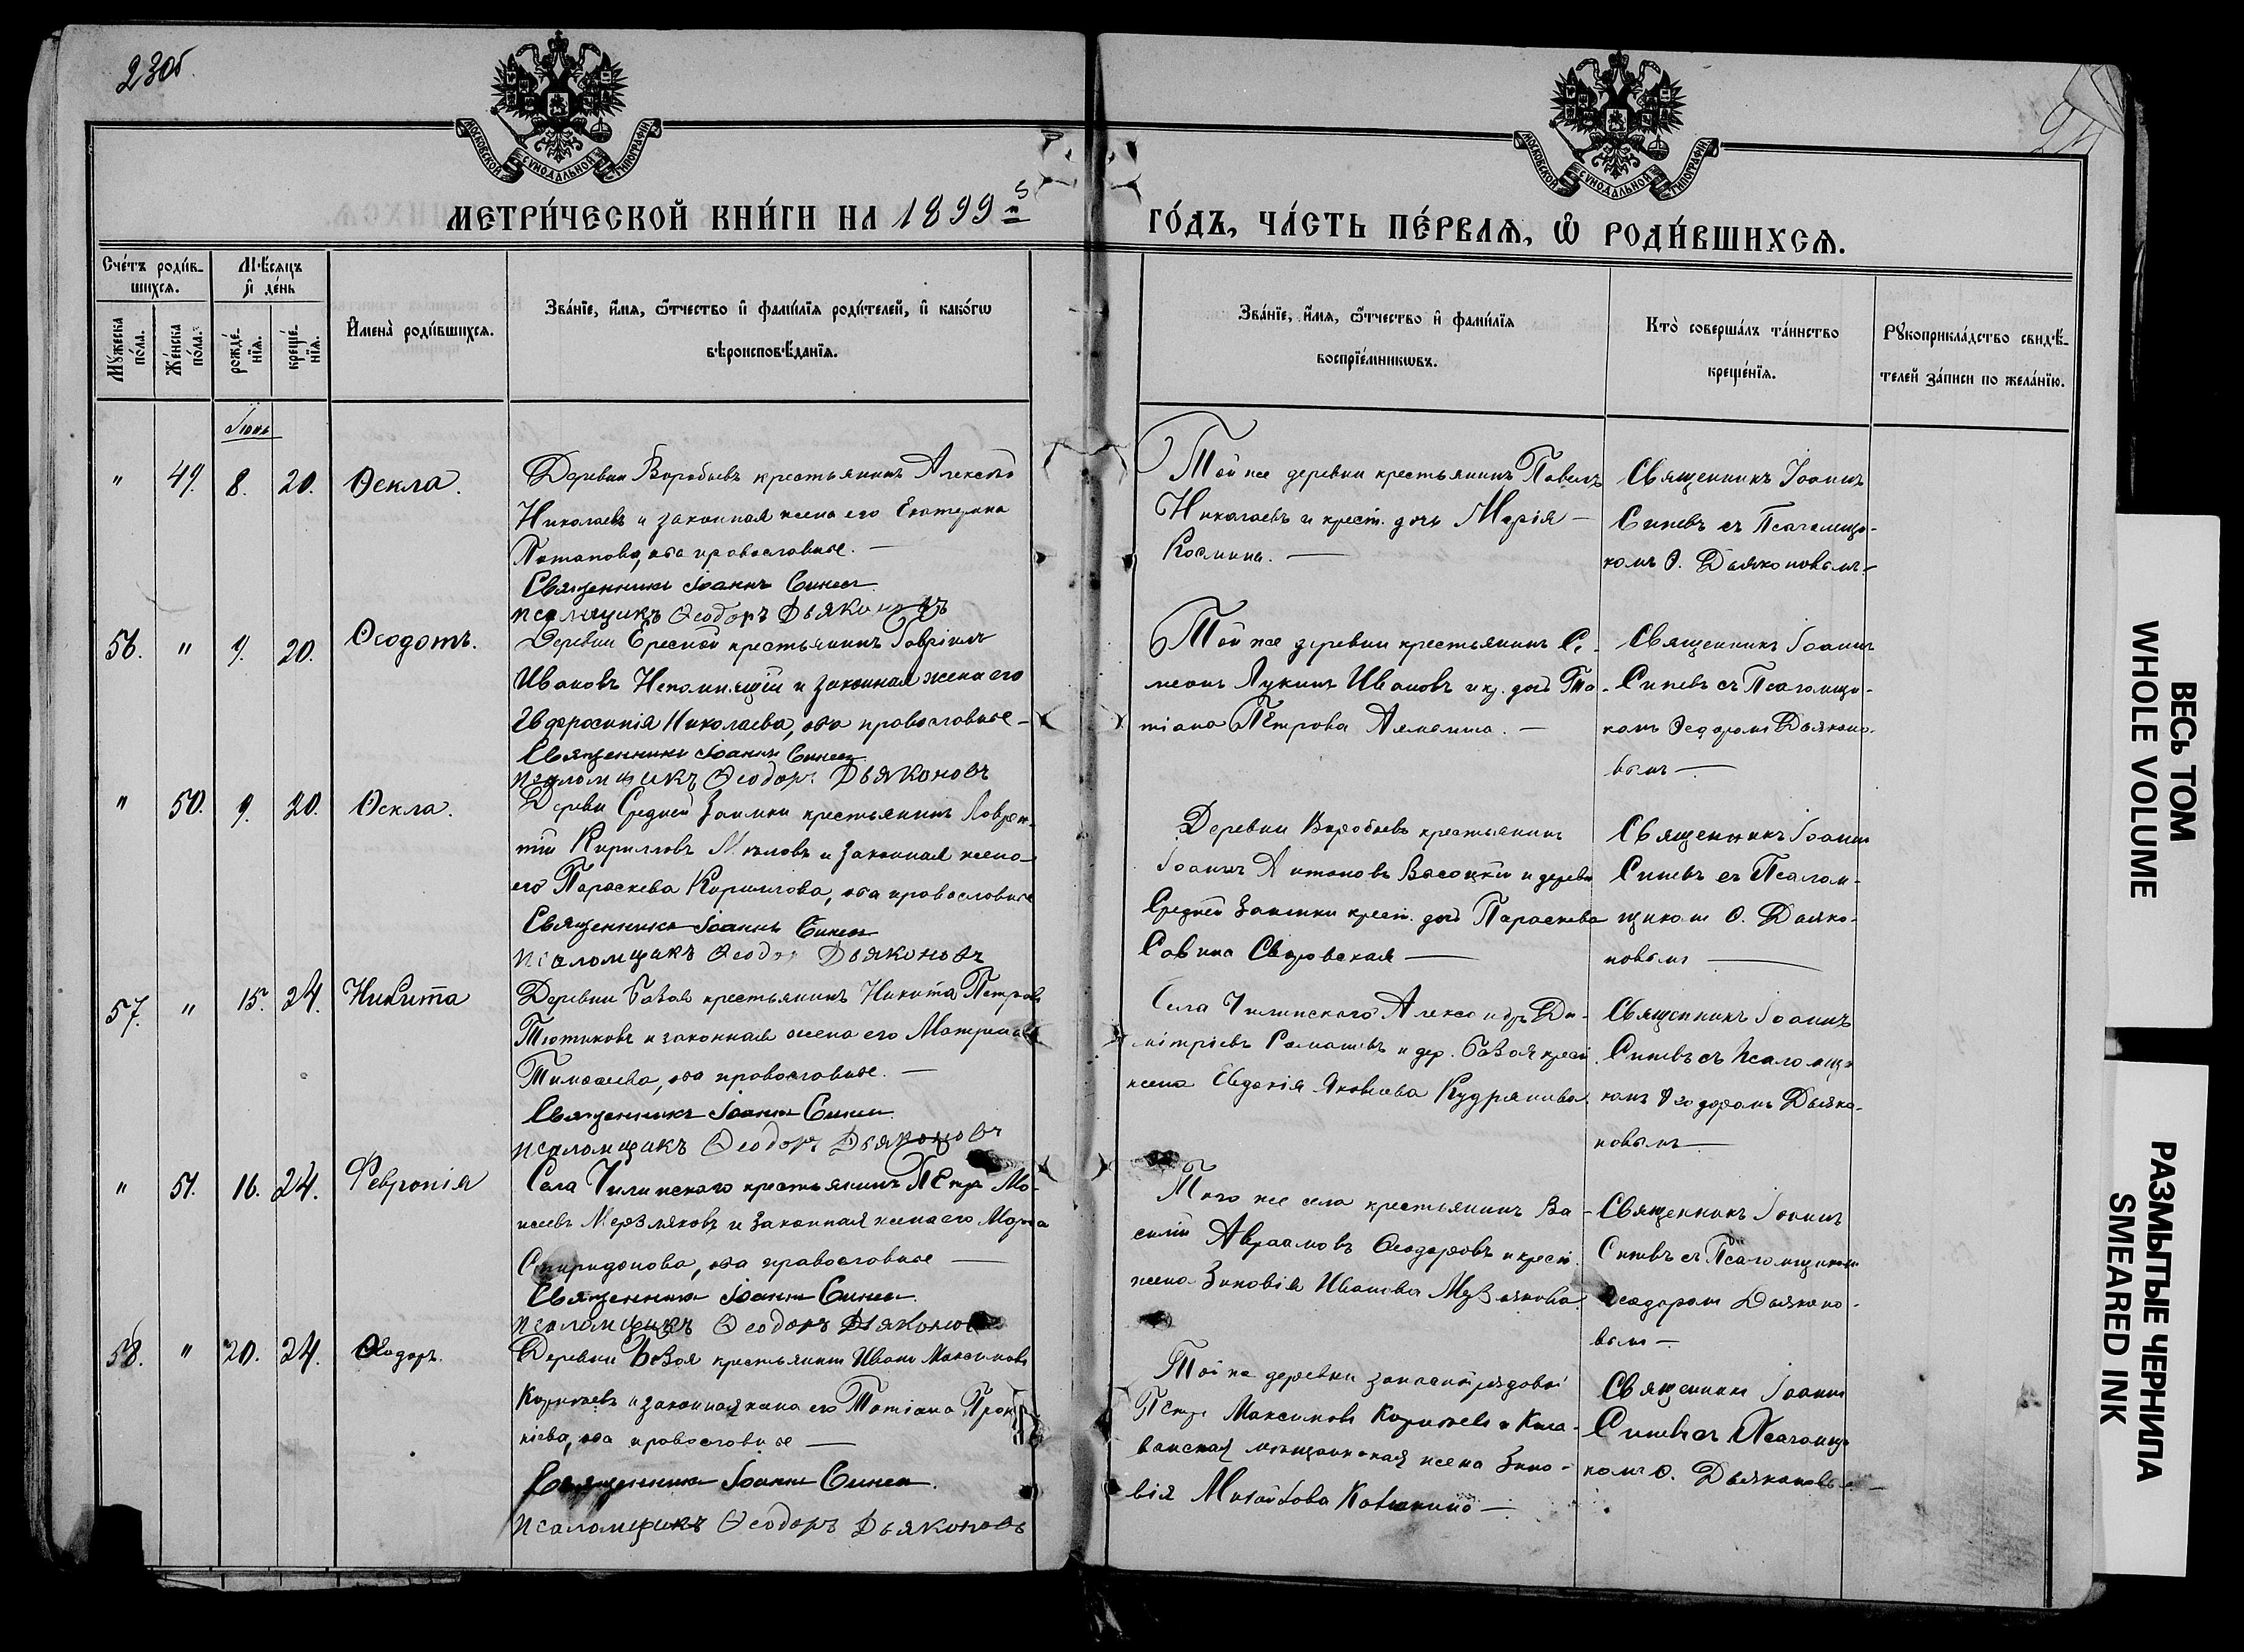 23об.
МОСКОВСКОЙ СѴНОДАЛЬНОЙ ТИПОГРАФІИ
МОСКОВСКОЙ СѴНОДАЛЬНОЙ ТИПОГРАФІИ
МЕТРИ́ЧЕСКОЙ КНИ́ГИ НА 1899 й
ГО́ДЪ, ЧА́СТЬ ПЕ́РВАѦ, Ѽ РОДИ́ВШИХСѦ.
Счéтъ родúв-
шихсѧ.
Мѣ́сѧцъ
и҆ дéнь
Мꙋ́жеска
пóла.
Жéнска
пóла.
рождé-
нїѧ.
крещé-
нїѧ.
И҆менà родúвшихсѧ.
Звáнїе, и҆́мѧ, ѻ҆́тчество и҆ фамúлїѧ родúтелей, и҆ какóгѡ
вѣроисповѣ́данїѧ.
Звáнїе, и҆́мѧ, ѻ҆́тчество и҆ фамúлїѧ
воспрїéмникѡвъ.
Ктò совершáлъ тáинство
крещéнїѧ.
Рꙋкоприклáдство свидѣ́-
телей зáписи по желáнїю.
Іюнь
" 49. 8. 20. Ѳекла.
Деревни Воробьевъ крестьянинъ Алексѣй
Николаевъ и законная жена его Екатерина
Потапова, оба православные. —
Священникъ Іоаннъ Синевъ
псаломщикъ Ѳеодоръ Дьяконовъ
Той же деревни крестьянинъ Павелъ
Николаевъ и крест. дочь Марія —
Космина. —
Священникъ Іоаннъ
Синевъ съ Псаломщи-
комъ Ѳ. Дьяконовымъ —
56. " 9. 20. Ѳеодотъ.
Деревни Ересной крестьянинъ Гавріилъ
Ивановъ Непомнящій и законная жена его
Евдросинія Николаева, оба православные —
Священникъ Іоаннъ Синевъ
псаломщикъ Ѳеодоръ Дьяконовъ
Той же деревни крестьянинъ Си-
меонъ Лукинъ Ивановъ и кр. дочь Та-
тіана Петрова —
Священникъ Іоаннъ
Синевъ съ Псаломщи-
комъ Ѳеодоромъ Дьяконо-
вымъ —
" 50. 9. 20. Ѳекла.
Деревни Средней Заимки крестьянинъ Лаврен-
тій Кирилловъ и законная жена
его Параскева Кириллова, оба православные
Священникъ Іоаннъ Синевъ
псаломщикъ Ѳеодоръ Дьяконовъ
Деревни Воробьевъ крестьянинъ
Іоаннъ Антоновъ Васоцкій и деревни
Средней Заимки крест. дочь Параскева
Савина —
Священникъ Іоаннъ
Синевъ съ Псалом-
щикомъ Ѳ. Дьяко-
новымъ —
57. " 15. 24. Никита
Деревни крестьянинъ Никита Петровъ
Тютиковъ и законная жена его Матрона
Тимофеева, оба православные. —
Священникъ Іоаннъ Синевъ
псаломщикъ Ѳеодоръ Дьяконовъ
Села Чилинского Александръ Ди-
митріевъ и дер. крест.
жена Евдокія Яковлева Кудрянова.
Священникъ Іоаннъ
Синевъ съ Псаломщи-
комъ Ѳеодоромъ Дьяко-
новымъ —
" 51. 16. 24. Февронія
Села Чилинского крестьянинъ Петръ Мо-
исеевъ Мерзляковъ и законная жена его Марѳа
Спиридонова, оба православные —
Священникъ Іоаннъ Синевъ
псаломщикъ Ѳеодоръ Дьяконовъ
Того же села крестьянинъ Ва-
силій Авраамовъ Ѳеодоровъ и крест.
жена Зиновія Иванова
Священникъ Іоаннъ
Синевъ съ Псаломщикомъ
Ѳеодоромъ Дьяконо-
вымъ —
58. " 20. 24. Ѳеодоръ.
Деревни крестьянинъ Иванъ Максимовъ
и законная жена его Татіана Прок-
піева, оба православные —
Священникъ Іоаннъ Синевъ.
псаломщикъ Ѳеодоръ Дьяконовъ
Той же деревни запасный рядовой
Петръ Максимовъ и Коло-
ванская мѣщанская жена Зино-
вія —
Священникъ Іоаннъ
Синевъ съ Псаломщи-
комъ Ѳ. Дьяконовымъ —
ВЕСЬ ТОМ
WHOLE VOLUME
РАЗМЫТЫЕ ЧЕРНИЛА
SMEARED INK